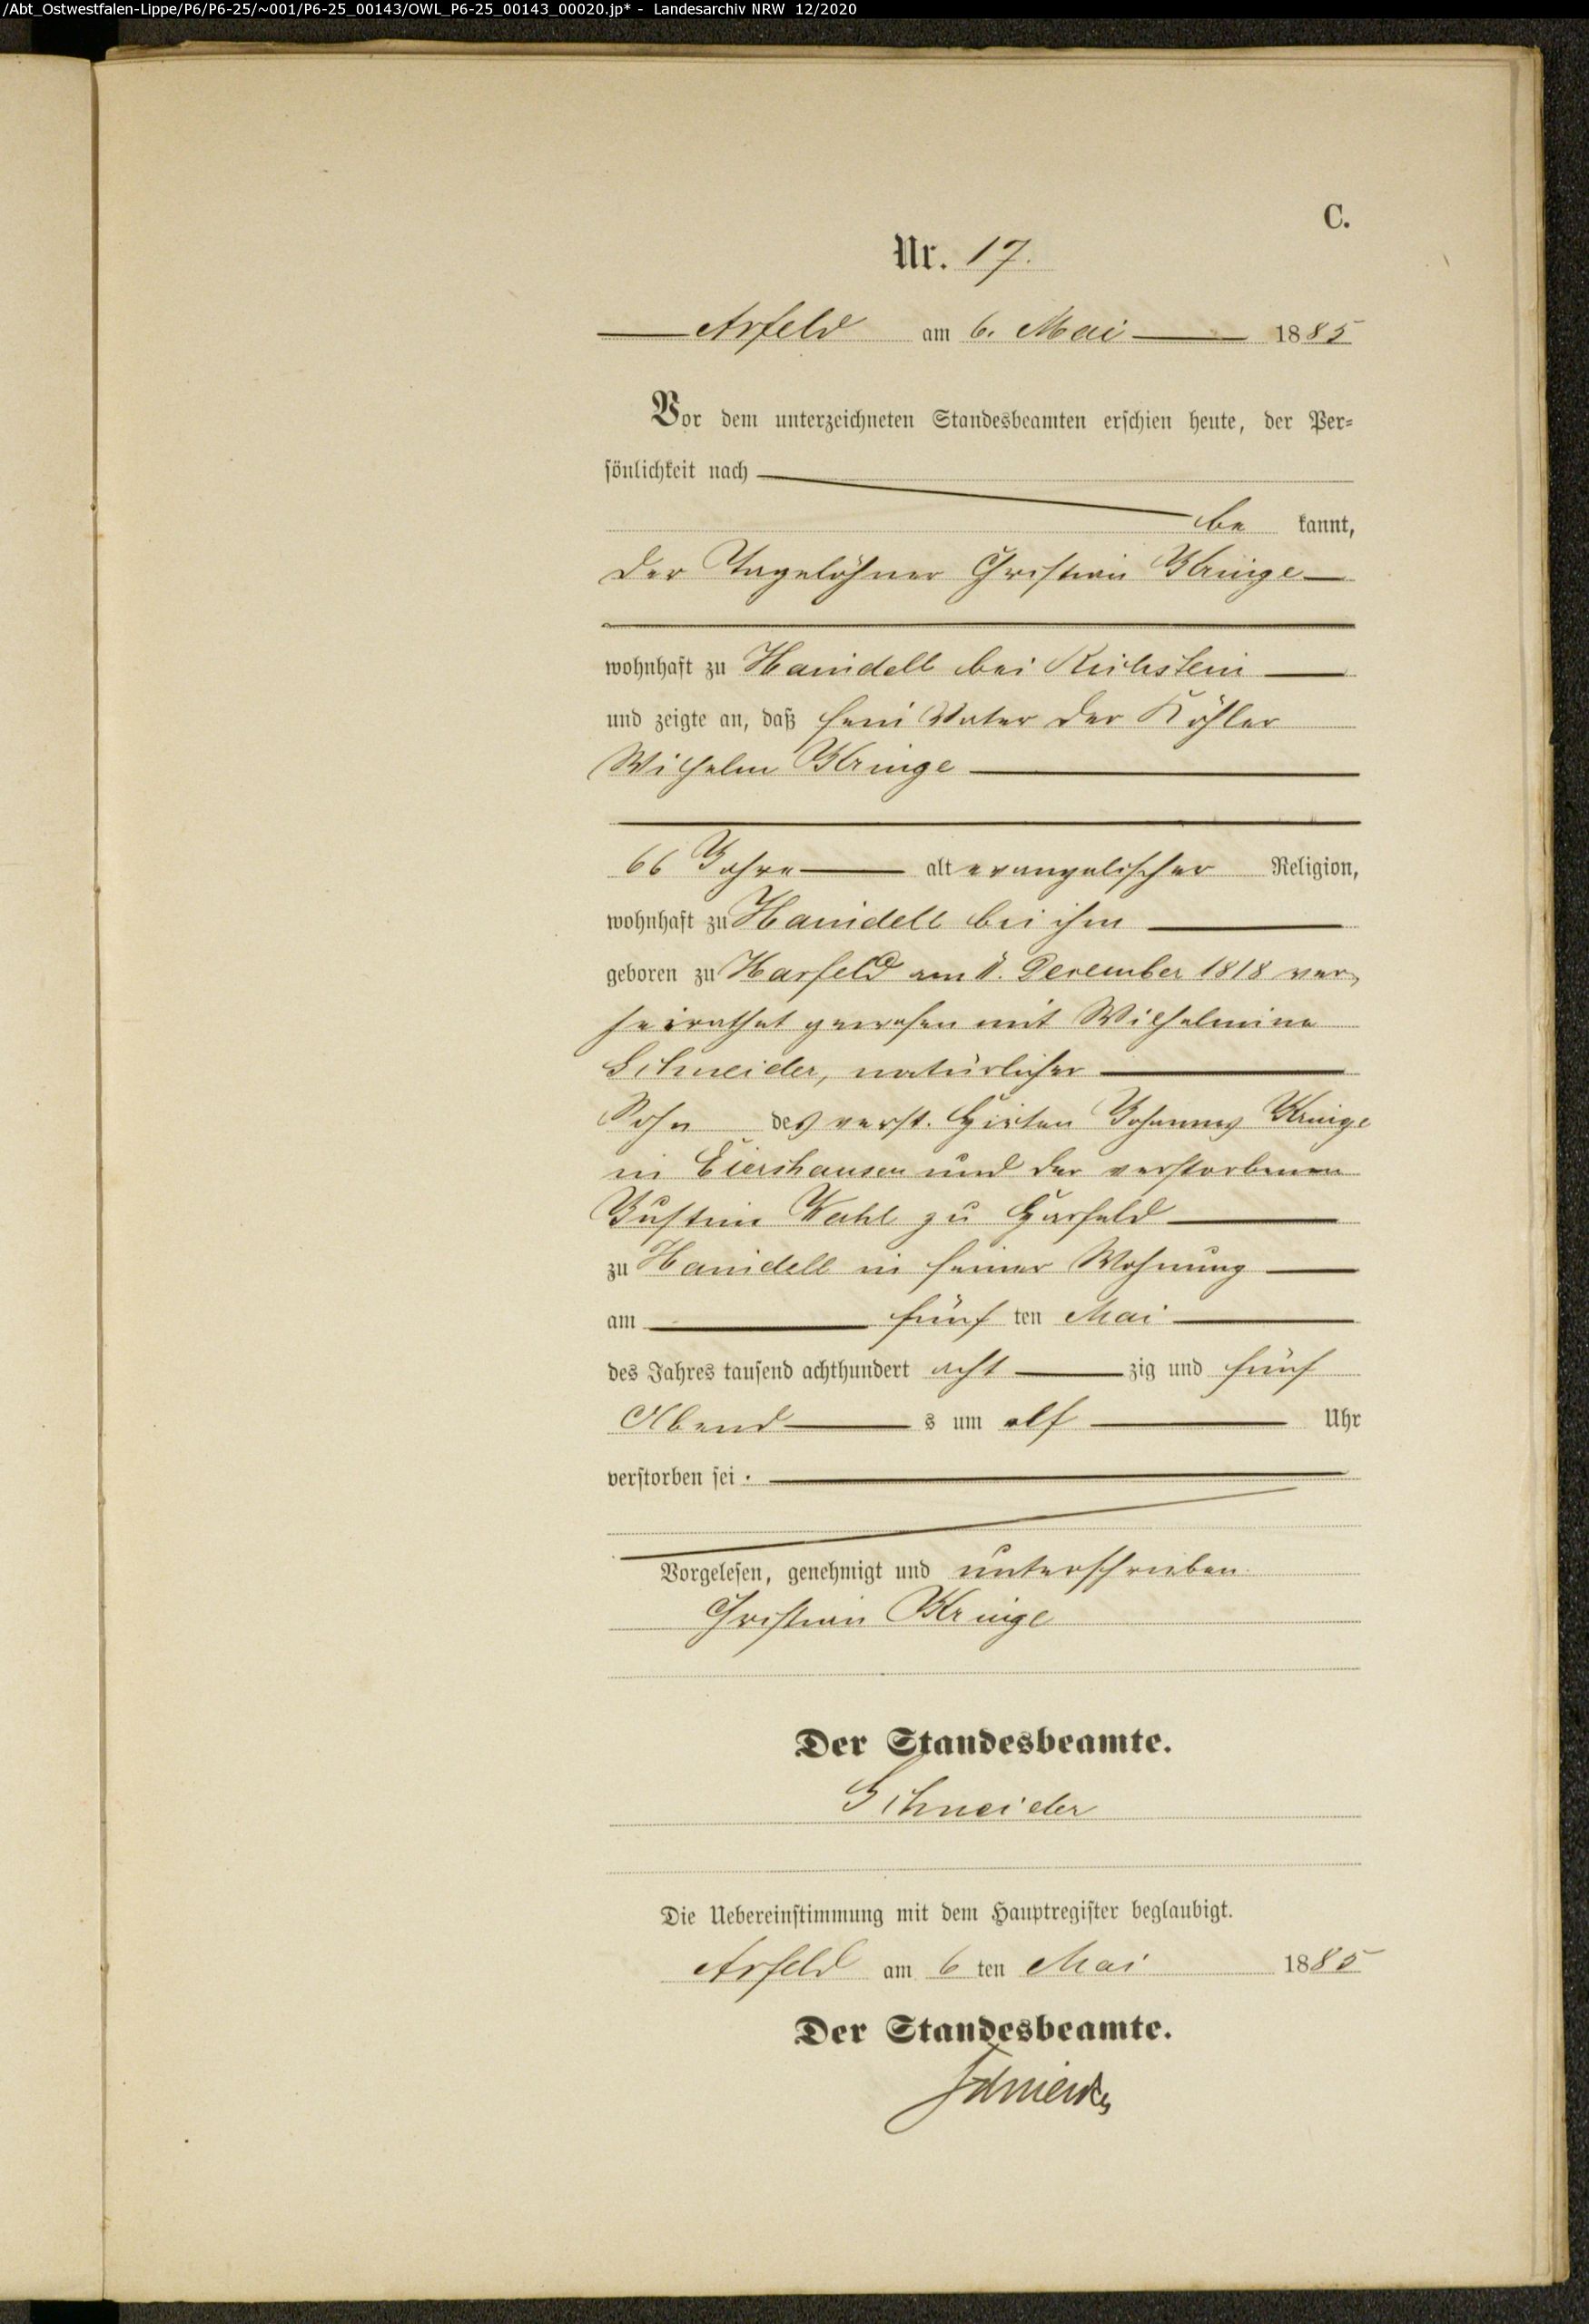 /Abt_Ostwestfalen-Lippe/P6/P6-25/~001/P6-25_00143/OWL_P6-25_00143_00020.jp* - Landesarchiv NRW 12/2020
C.
Nr. 17.
Arfeld am 6. Mai 1885
Vor dem unterzeichneten Standesbeamten erschien heute, der Per-
sönlichkeit nach
be kannt,
der Tagelöhner Christian Kringe
wohnhaft zu Hanidell bei Richstein
und zeigte an, daß sein Vater der Köhler
Wilhelm Kringe
66 Jahre alt evangelischer Religion,
wohnhaft zu Hanidell bei ihm
geboren zu Harfeld am Dezember 1818 ver-
heirathet gewesen mit Wilhelmine
Schneider, natürlicher
Sohn des verst. Hirten Johannes Kringe
in Eiershausen und der verstorbenen
Justine Wahl zu Harfeld
zu Hanidell in seiner Wohnung
am fünf ten Mai
des Jahres tausend achthundert acht zig und fünf
Abend s um elf Uhr
verstorben sei.
Vorgelesen, genehmigt und unterschrieben
Christian Kringe
Der Standesbeamte.
Schneider
Die Uebereinstimmung mit dem Hauptregister beglaubigt.
Arfeld am 6 ten Mai 1885
Der Standesbeamte.
Schneider